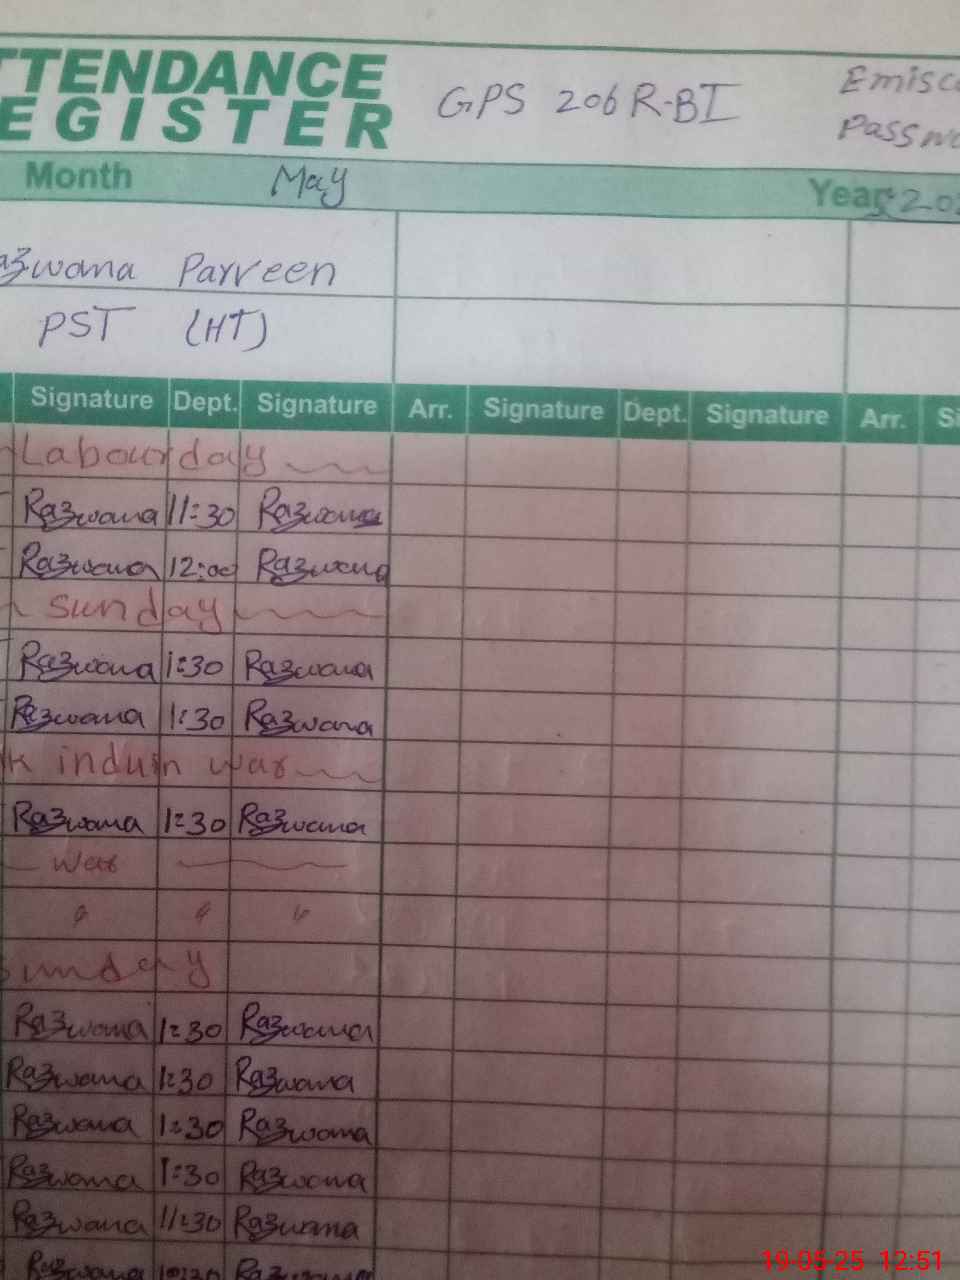 TTENDANCE
EGISTER
GPS 206 R-BI
Emisco
Passwo
Month May Year 202
azwana Parveen
PST (HT)
Signature Dept. Signature Arr. Signature Dept. Signature Arr. Si
Labour day
Razwana 11:30 Razwana
Razwana 12:00 Razwana
Sunday
Razwana 1:30 Razwana
Razwana 1:30 Razwana
k induin war
Razwana 1:30 Razwana
War
Sunday
Razwana 1:30 Razwana
Razwana 1:30 Razwana
Razwana 1:30 Razwana
Razwana 1:30 Razwana
Razwana 11:30 Razwana
Razwana Razwana
19-05-25 12:51